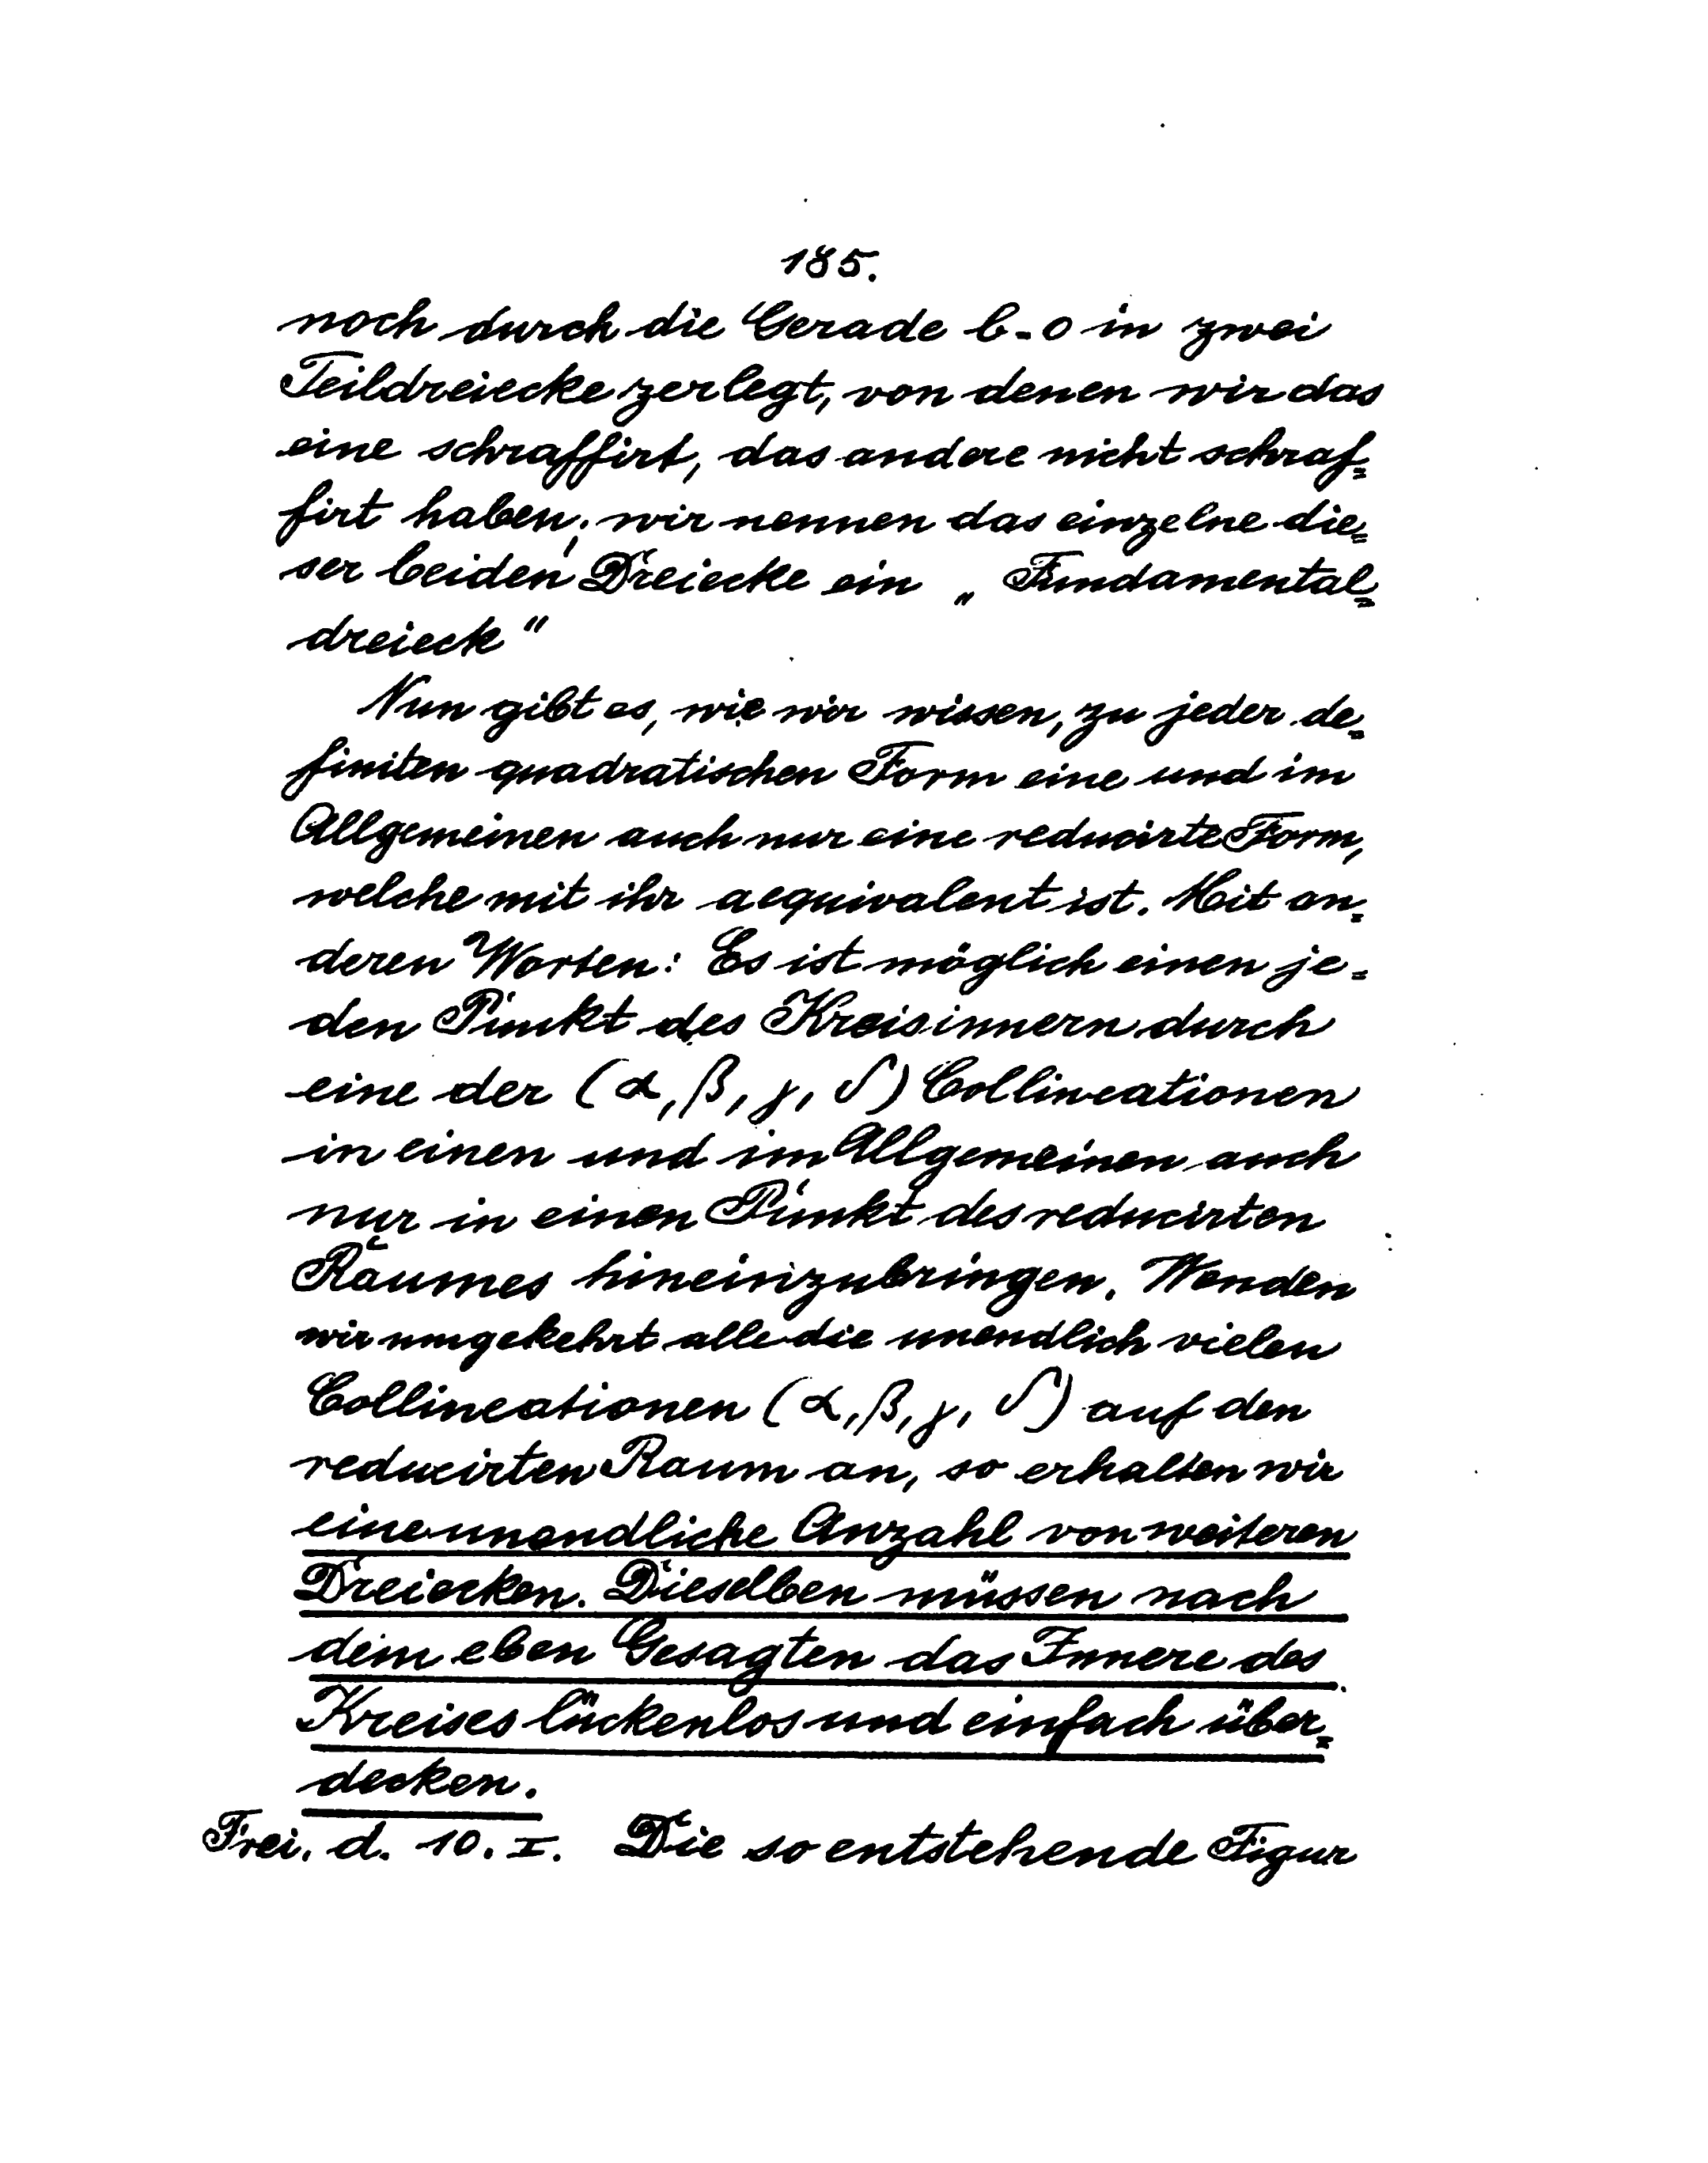 185.
noch durch die Gerade b=0 in zwei
Teildreiecke zerlegt, von denen wir das
eine schraffirt, das andere nicht schraf=
firt haben; wir nennen das einzelne die=
ser beiden Dreiecke ein „Fundamental=
dreieck"
Nun gibt es, wie wir wissen, zu jeder de=
finiten quadratischen Form eine und im
Allgemeinen auch nur eine reducirte Form,
welche mit ihr aequivalent ist. Mit an=
deren Worten: Es ist möglich einen je=
den Punkt des Kreisinnern durch
eine der (α, β, γ, δ) Collineationen
in einen und im Allgemeinen auch
nur in einen Punkt des reducirten
Raumes hineinzubringen. Wenden
wir umgekehrt alle die unendlich vielen
Collineationen (α, β, γ, δ) auf den
reducirten Raum an, so erhalten wir
eine unendliche Anzahl von weiteren
Dreiecken. Dieselben müssen nach
dem eben Gesagten das Innere des
Kreises lückenlos und einfach über=
decken.
Frei. d. 10. I. Die so entstehende Figur